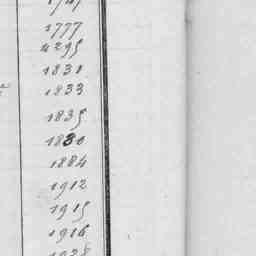 1777
4295
1831
1833
1835
1830
1884
1912
1915
1916
1928